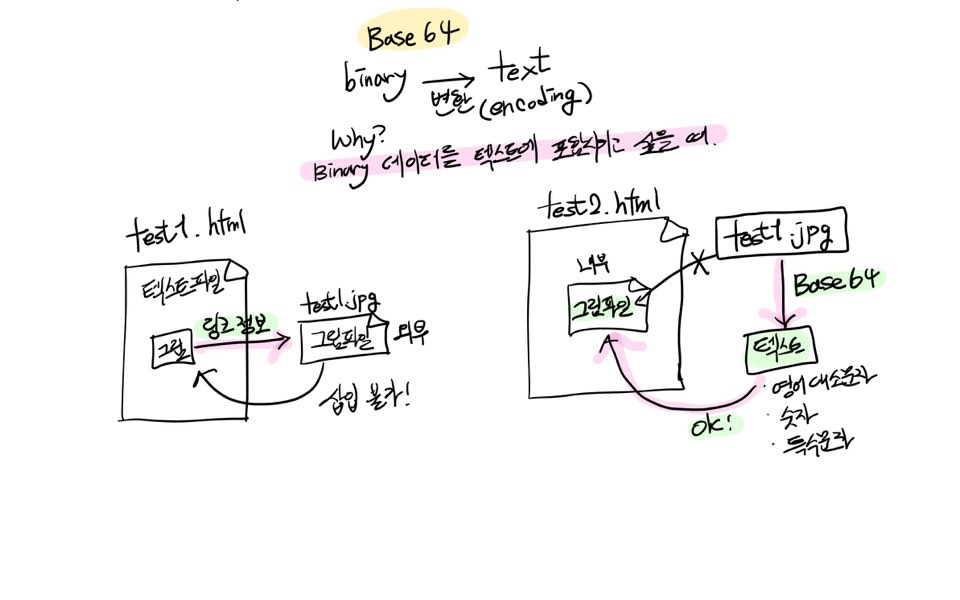 Base 64
binary → text
변환 (encoding)
Why?
Binary 데이터를 텍스트에 포함시키고 싶을 때.
test1.html
텍스트파일
그림
링크 정보
test1.jpg
그림파일
외부
삽입 불가!
test2.html
내부
그림파일
test1.jpg
Base64
텍스트
· 영어 대소문자
· 숫자
· 특수문자
OK!